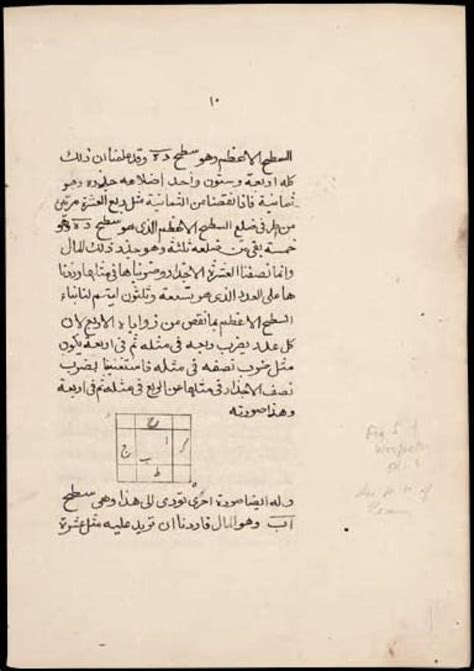 ١٠
السطح الاعظم وهو سطح ده وقد علمنا ان ذلك
كله اربعة وستون واحد اضلاعه جذره وهو
ثمانية فاذا نقصنا من الثمانية مثل ربع العشرة مرتين
من طرفى ضلع السطح الاعظم الذى هو سطح ده وهو
خمسة بقى من ضلعه ثلثة وهو جذر ذلك المال
وانما نصفنا العشرة الاجذار وضربناها فى مثلها وزدنا
ها على العدد الذى هو تسعة وثلثون ليتم لنا بناء
السطح الاعظم بما نقص من زواياه الاربع لان
كل عدد يضرب ربعه فى مثله ثم فى اربعة يكون
مثل ضرب نصفه فى مثله فاستغنينا بضرب
نصف الاجذار فى مثلها عن الربع فى مثله ثم فى اربعة
وهذا صورته
ح
ا
ج ب
ط
وله ايضا صورة اخرى تودى الى هذا وهى سطح
اب وهو المال فاردنا ان نزيد عليه مثل عشرة
Fig 5 of